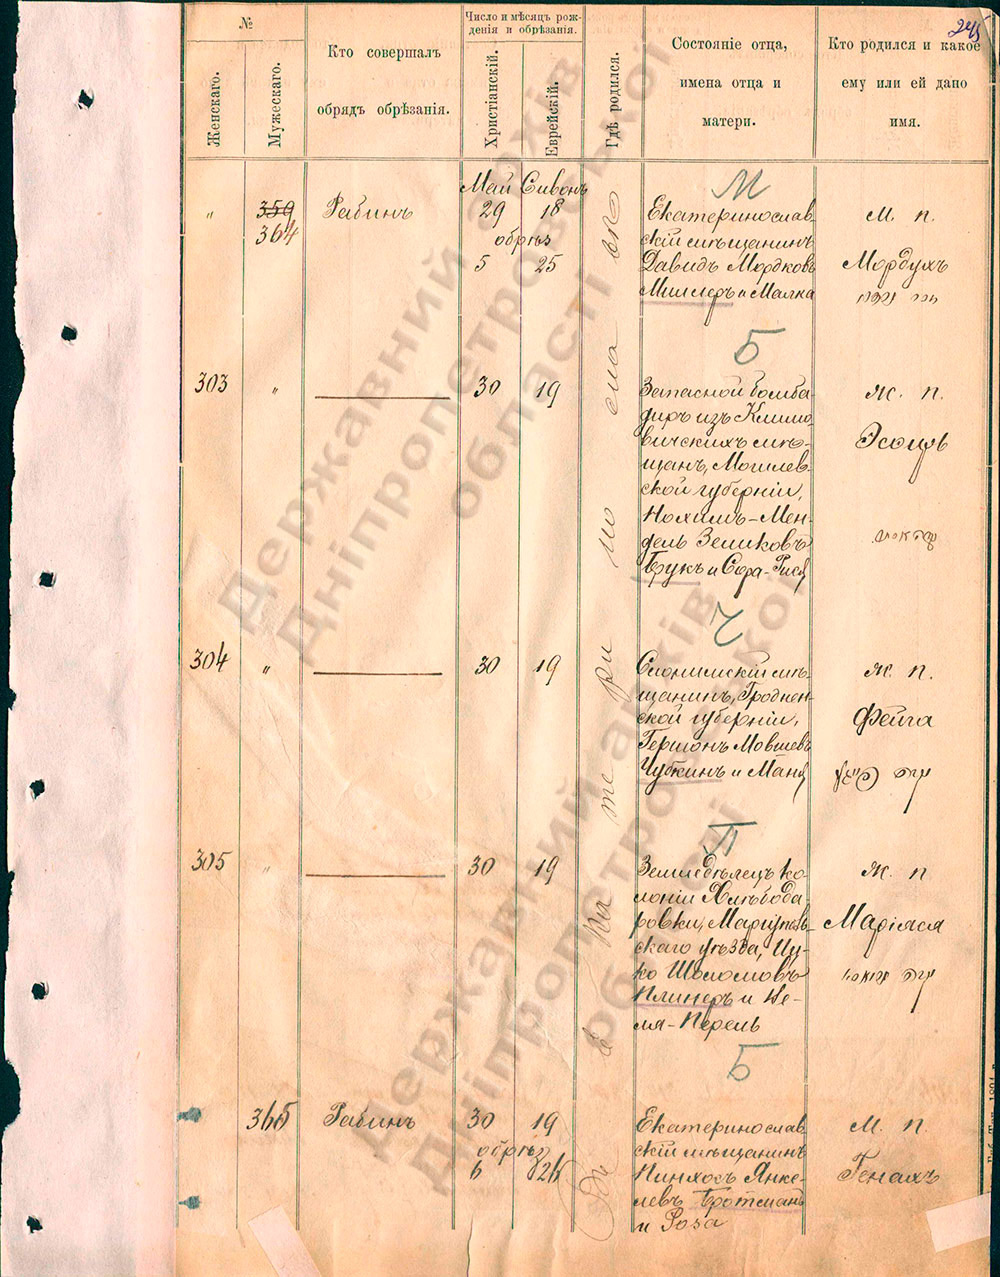 245
№
Женскаго.
Мужескаго.
Кто совершалъ
обрядъ обрѣзанія.
Число и мѣсяцъ рож-
денія и обрѣзанія.
Христіанскій.
Еврейскій.
Гдѣ родился.
Состояніе отца,
имена отца и
матери.
Кто родился и какое
ему или ей дано
имя.
М
„ 359 Рабинъ
364
Май Сивонъ
29 18
обрѣз
5 25
Екатеринослав
скій мѣщанинъ
Давидъ Мордковъ
Миллеръ и Малка
М. п.
Мордухъ
Б
303 „ 30 19
Запасной бомба
диръ изъ Климо
вичскихъ мѣ-
щанъ, Могилев-
ской губерніи,
Нохимъ-Мен-
дель Зеликовъ
Брукъ и Сора-Рися
Ж. п.
Эсѳирь
Ч
304 „ 30 19
Слонимскій мѣ-
щанинъ, Гроднен-
ской губерніи,
Гершонъ Мовшевъ
Чубкинъ и Маня
Ж. п.
Фейга
П
305 „ 30 19
Земледѣлецъ ко-
лоніи Хлѣбода-
ровки, Маріупол-
скаго уѣзда, Иц-
ко Шоломовъ
Плинеръ и Бе-
ля-Перель
Ж. п
Маріяся
Б
365 Рабинъ 30 19
обрѣз
6
Екатеринослав
скій мѣщанинъ
Пинхосъ Янке-
левъ Бротманъ
и Роза
М. п.
Генахъ
Державний архів
Дніпропетровської
області
Державний архів
Дніпропетровської
області